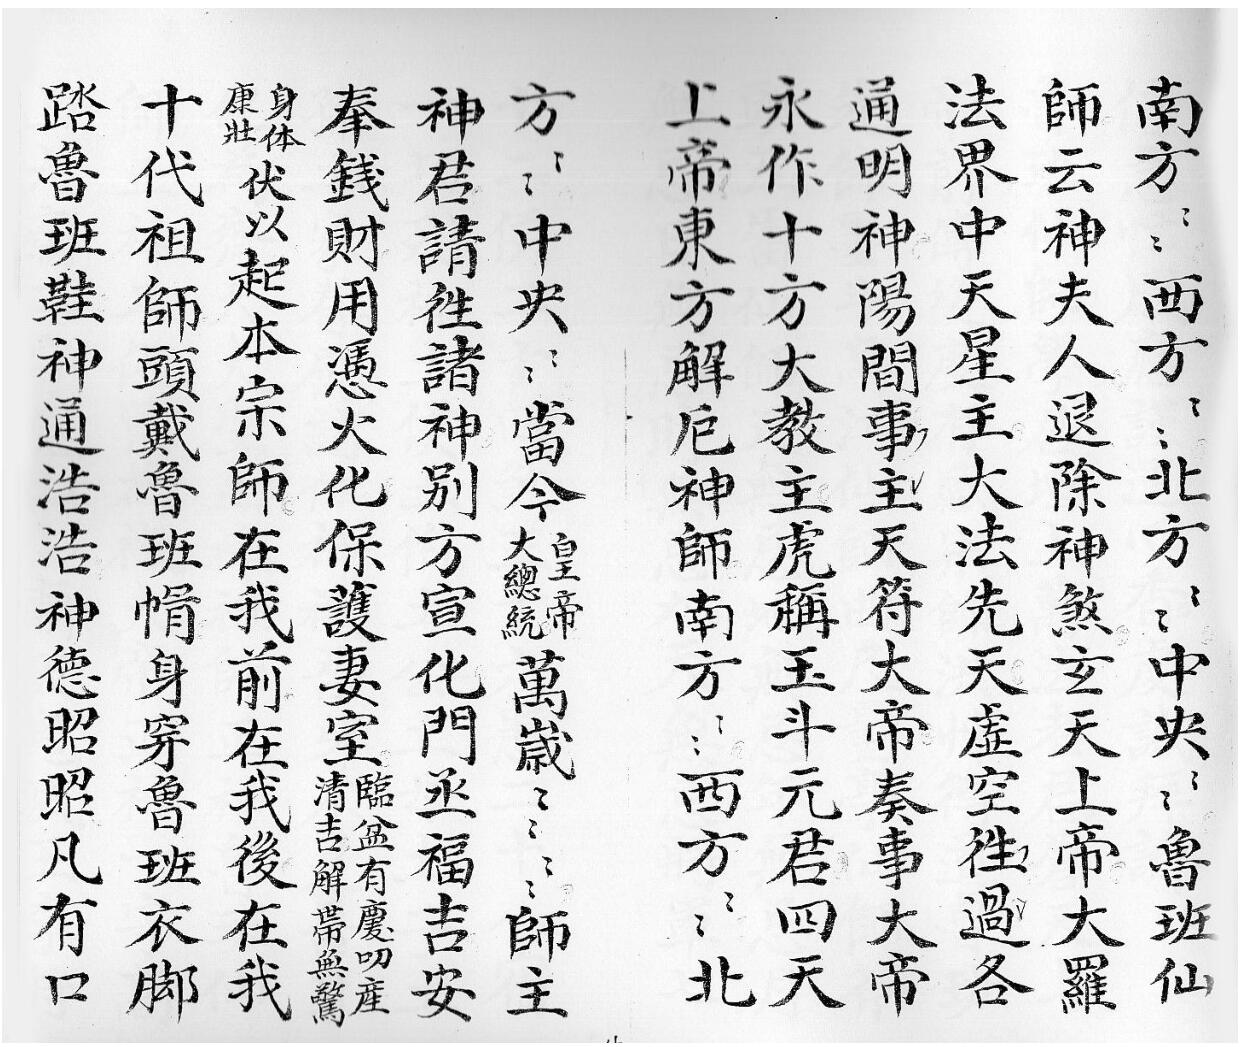 南方〻〻西方〻〻北方〻〻中央〻〻魯班仙
師云神夫人退除神煞玄天上帝大羅
法界中天星主大法先天虛空徃過各
通明神陽間事主天符大帝奏事大帝
永作十方大教主虎稱玉斗元君四天
上帝東方解厄神師南方〻〻西方〻〻北
方〻〻中央〻〻當今皇帝大總統萬歲〻〻〻〻師主
神君請徃諸神別方宣化門丞福吉安
奉錢財用憑火化保護妻室臨盆有慶叨產清吉解帶無驚
身体康壯伏以起本宗師在我前在我後在我
十代祖師頭戴魯班帽身穿魯班衣脚
踏魯班鞋神通浩浩神德昭昭凡有口